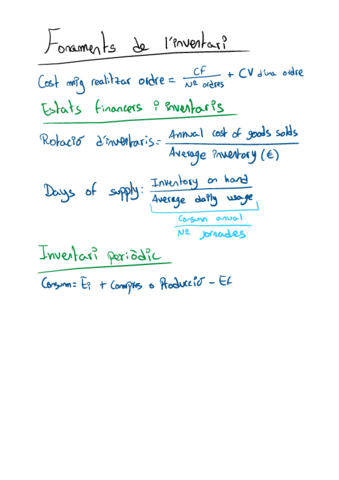 Fonaments de l'inventari
Cost mig realitzar ordre = CF / Nº ordres + CV d'una ordre
Estats financers i inventaris
Rotació d'inventaris = Annual cost of goods solds / Average inventory (€)
Days of supply: Inventory on hand / Average daily usage
Consum anual / Nº jornades
Inventari periòdic
Consum = Ei + Compres o Producció - Ef